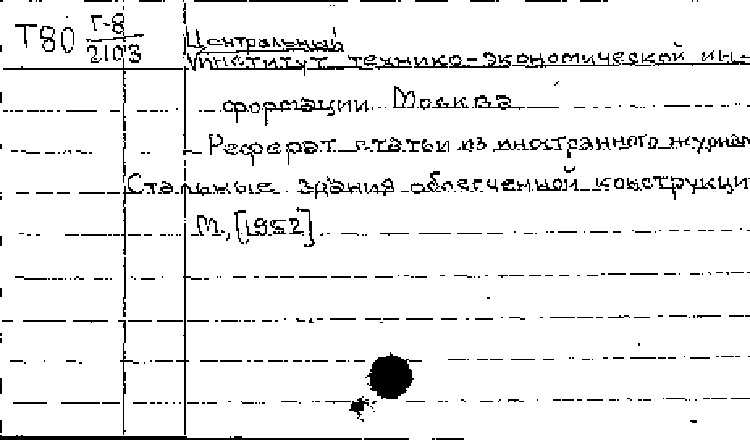 Т80 Г-8
2103
Центральный
институт технико-экономической ин-
формации. Москва
Реферат статьи из иностранного журнал
Стальные здания облегченной конструкци
М., [1952]